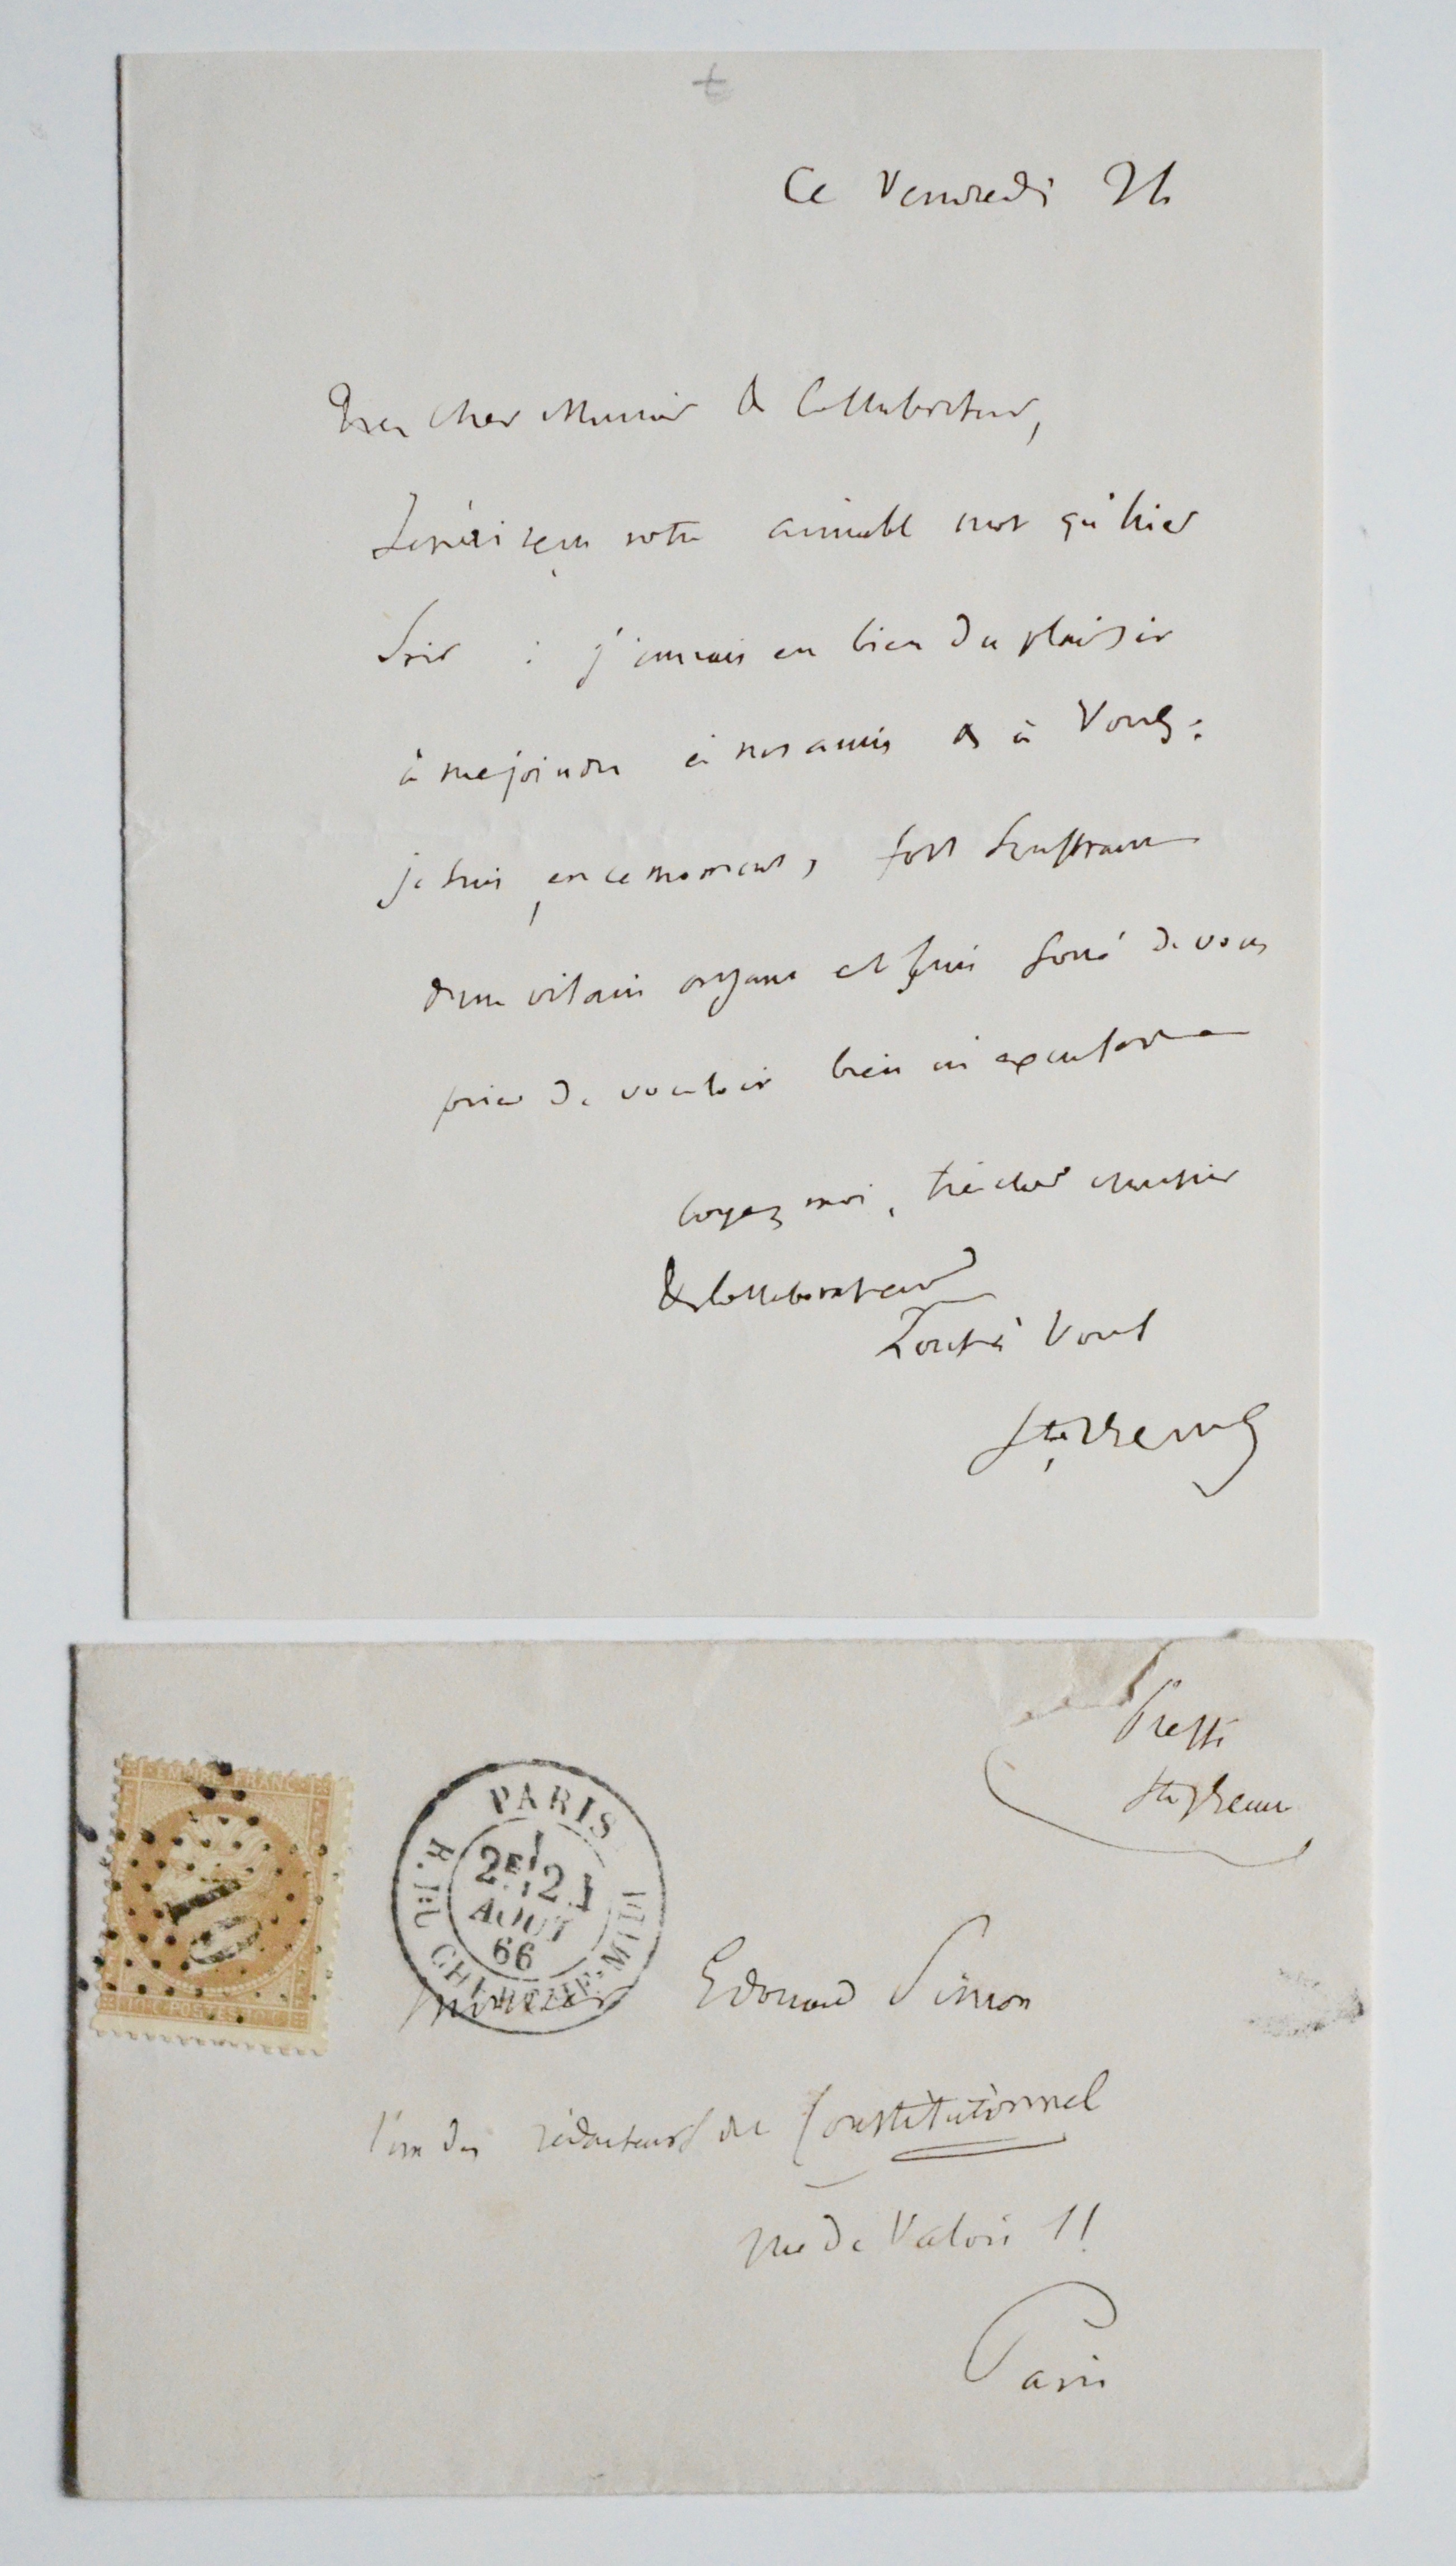 Ce Vendredi 24
Très cher Monsieur & Collaborateur,
Je n'ai reçu votre aimable mot qu'hier
soir : j'aurais eu bien du plaisir
à me joindre à nos amis & à vous ;
je suis, en ce moment, fort souffrant
d'un vilain organe et suis forcé de vous
prier de vouloir bien m'excuser
Croyez moi, très cher Monsieur
& Collaborateur
Tout à vous
Ste Beuve
Pressé
Ste Beuve
EMPIRE FRANC
10 C POSTES 10 C
PARIS
R. DU CHERCHE-MIDI
2E
AOUT
66
Monsieur Edouard Simon
l'un des rédacteurs du Constitutionnel
rue de Valois 11
Paris